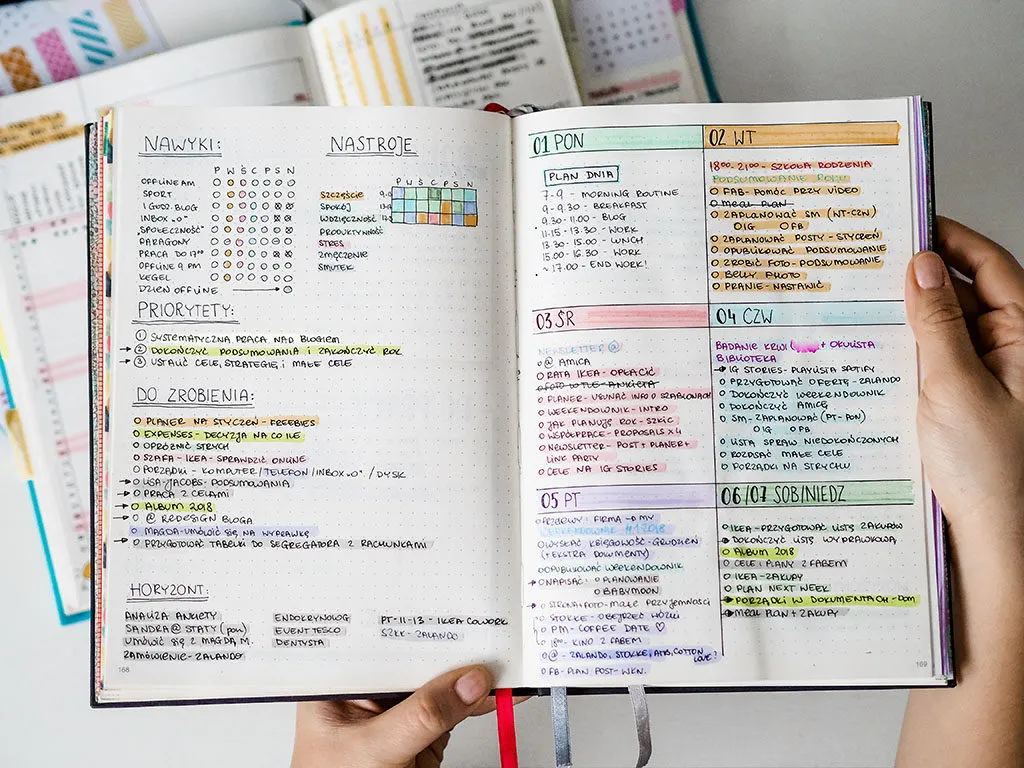 NAWYKI:
P W Ś C P S N
OFFLINE AM
SPORT
1 GODZ. BLOG
INBOX "0"
"SPOŁECZNOŚĆ"
PARAGONY
PRACA DO 17⁰⁰
OFFLINE 9 PM
KEGEL
DZIEŃ OFFLINE
NASTROJE
P W Ś C P S N
SZCZĘŚCIE
SPOKÓJ
WDZIĘCZNOŚĆ
PRODUKTYWNOŚĆ
STRES
ZMĘCZENIE
SMUTEK
PRIORYTETY:
1 SYSTEMATYCZNA PRACA NAD BLOGIEM
→ 2 DOKOŃCZYĆ PODSUMOWANIA I ZAKOŃCZYĆ ROK
→ 3 USTALIĆ CELE, STRATEGIĘ I MAŁE CELE
DO ZROBIENIA:
O PLANER NA STYCZEŃ - FREEBIES
O EXPENSES - DECYZJA NA CO ILE
O OPRÓŻNIĆ STRYCH
O SZAFA - IKEA - SPRAWDZIĆ ONLINE
O PORZĄDKI - KOMPUTER / TELEFON / INBOX "0" / DYSK
→ O LISA JACOBS - PODSUMOWANIA
→ O PRACA Z CELAMI
→ O ALBUM 2018
→ O @ REDESIGN BLOGA
O MAGDA - UMÓWIĆ SIĘ NA WYPRAWKĘ
→ O PRZYGOTOWAĆ TABELKI DO SEGREGATORA Z RACHUNKAMI
HORYZONT:
ANALIZA ANKIETY
SANDRA @ STATY (pon)
UMÓWIĆ SIĘ Z MAGDĄ M.
ZAMÓWIENIE - ZALANDO
ENDOKRYNOLOG
EVENT TESCO
DENTYSTA
PT - 11-13 - IKEA COWORK
SZKIC - ZALANDO
168
01 PON
PLAN DNIA
7 - 9 - MORNING ROUTINE
9 - 9.30 - BREAKFAST
9.30 - 11.00 - BLOG
11.15 - 13.30 - WORK
13.30 - 15.00 - LUNCH
15.00 - 16.30 - WORK
~ 17.00 - END WORK!
02 WT
18⁰⁰ - 21⁰⁰ - SZKOŁA RODZENIA
PODSUMOWANIE ROKU
O FAB - POMÓC PRZY VIDEO
O MEAL PLAN
O ZAPLANOWAĆ SM (WT-CZW)
O IG O FB
O ZAPLANOWAĆ POSTY - STYCZEŃ
O OPUBLIKOWAĆ PODSUMOWANIE
O ZROBIĆ FOTO - PODSUMOWANIE
O BELLY PHOTO
O PRANIE - NASTAWIĆ
03 ŚR
NEWSLETTER @
O @ AMICA
O RATA IKEA - OPŁACIĆ
O FOTO W TLE - ANKIETA
O PLANER - USUNĄĆ INFO O SZABLONACH
O WEEKENDOWNIK - INTRO
O JAK PLANUJĘ ROK - SZKIC
O WSPÓŁPRACE - PROPOSALS x 4
O NEWSLETTER - POST + PLANER +
LINK PARTY
O CELE NA IG STORIES
04 CZW
BADANIE KRWI + OKULISTA
BIBLIOTEKA
→ IG STORIES - PLAYLISTA SPOTIFY
O PRZYGOTOWAĆ OFERTĘ - ZALANDO
O DOKOŃCZYĆ WEEKENDOWNIK
O DOKOŃCZYĆ AMICĘ
O SM - ZAPLANOWAĆ (PT - PON)
O IG O FB
O LISTA SPRAW NIEDOKOŃCZONYCH
O ROZPISAĆ MAŁE CELE
O PORZĄDKI NA STRYCHU
05 PT
O PRZELEWY: FIRMA → MY
WEEKENDOWNIK #1.2018
O WYSŁAĆ KSIĘGOWOŚĆ - GRUDZIEŃ
(+ EKSTRA DOKUMENTY)
O OPUBLIKOWAĆ WEEKENDOWNIK
→ O NAPISAĆ: O PLANOWANIE
O BABYMOON
→ O STRONA + FOTO - MAŁE PRZYJEMNOŚCI
O STOKKE - OBEJRZEĆ WÓZKI
O PM - COFFEE DATE ♡
O 18⁰⁰ KINO Z FABEM
O @ - ZALANDO, STOKKE, ATB, COTTON
LOVE?
O FB - PLAN POST - WKN.
06/07 SOB/NIEDZ
O IKEA - PRZYGOTOWAĆ LISTĘ ZAKUPÓW
→ DOKOŃCZYĆ LISTĘ WYPRAWKOWĄ
O ALBUM 2018
O CELE I PLANY Z FABEM
O IKEA - ZAKUPY
O PLAN NEXT WEEK
→ PORZĄDKI W DOKUMENTACH - DOM
→ MEAL PLAN + ZAKUPY
169